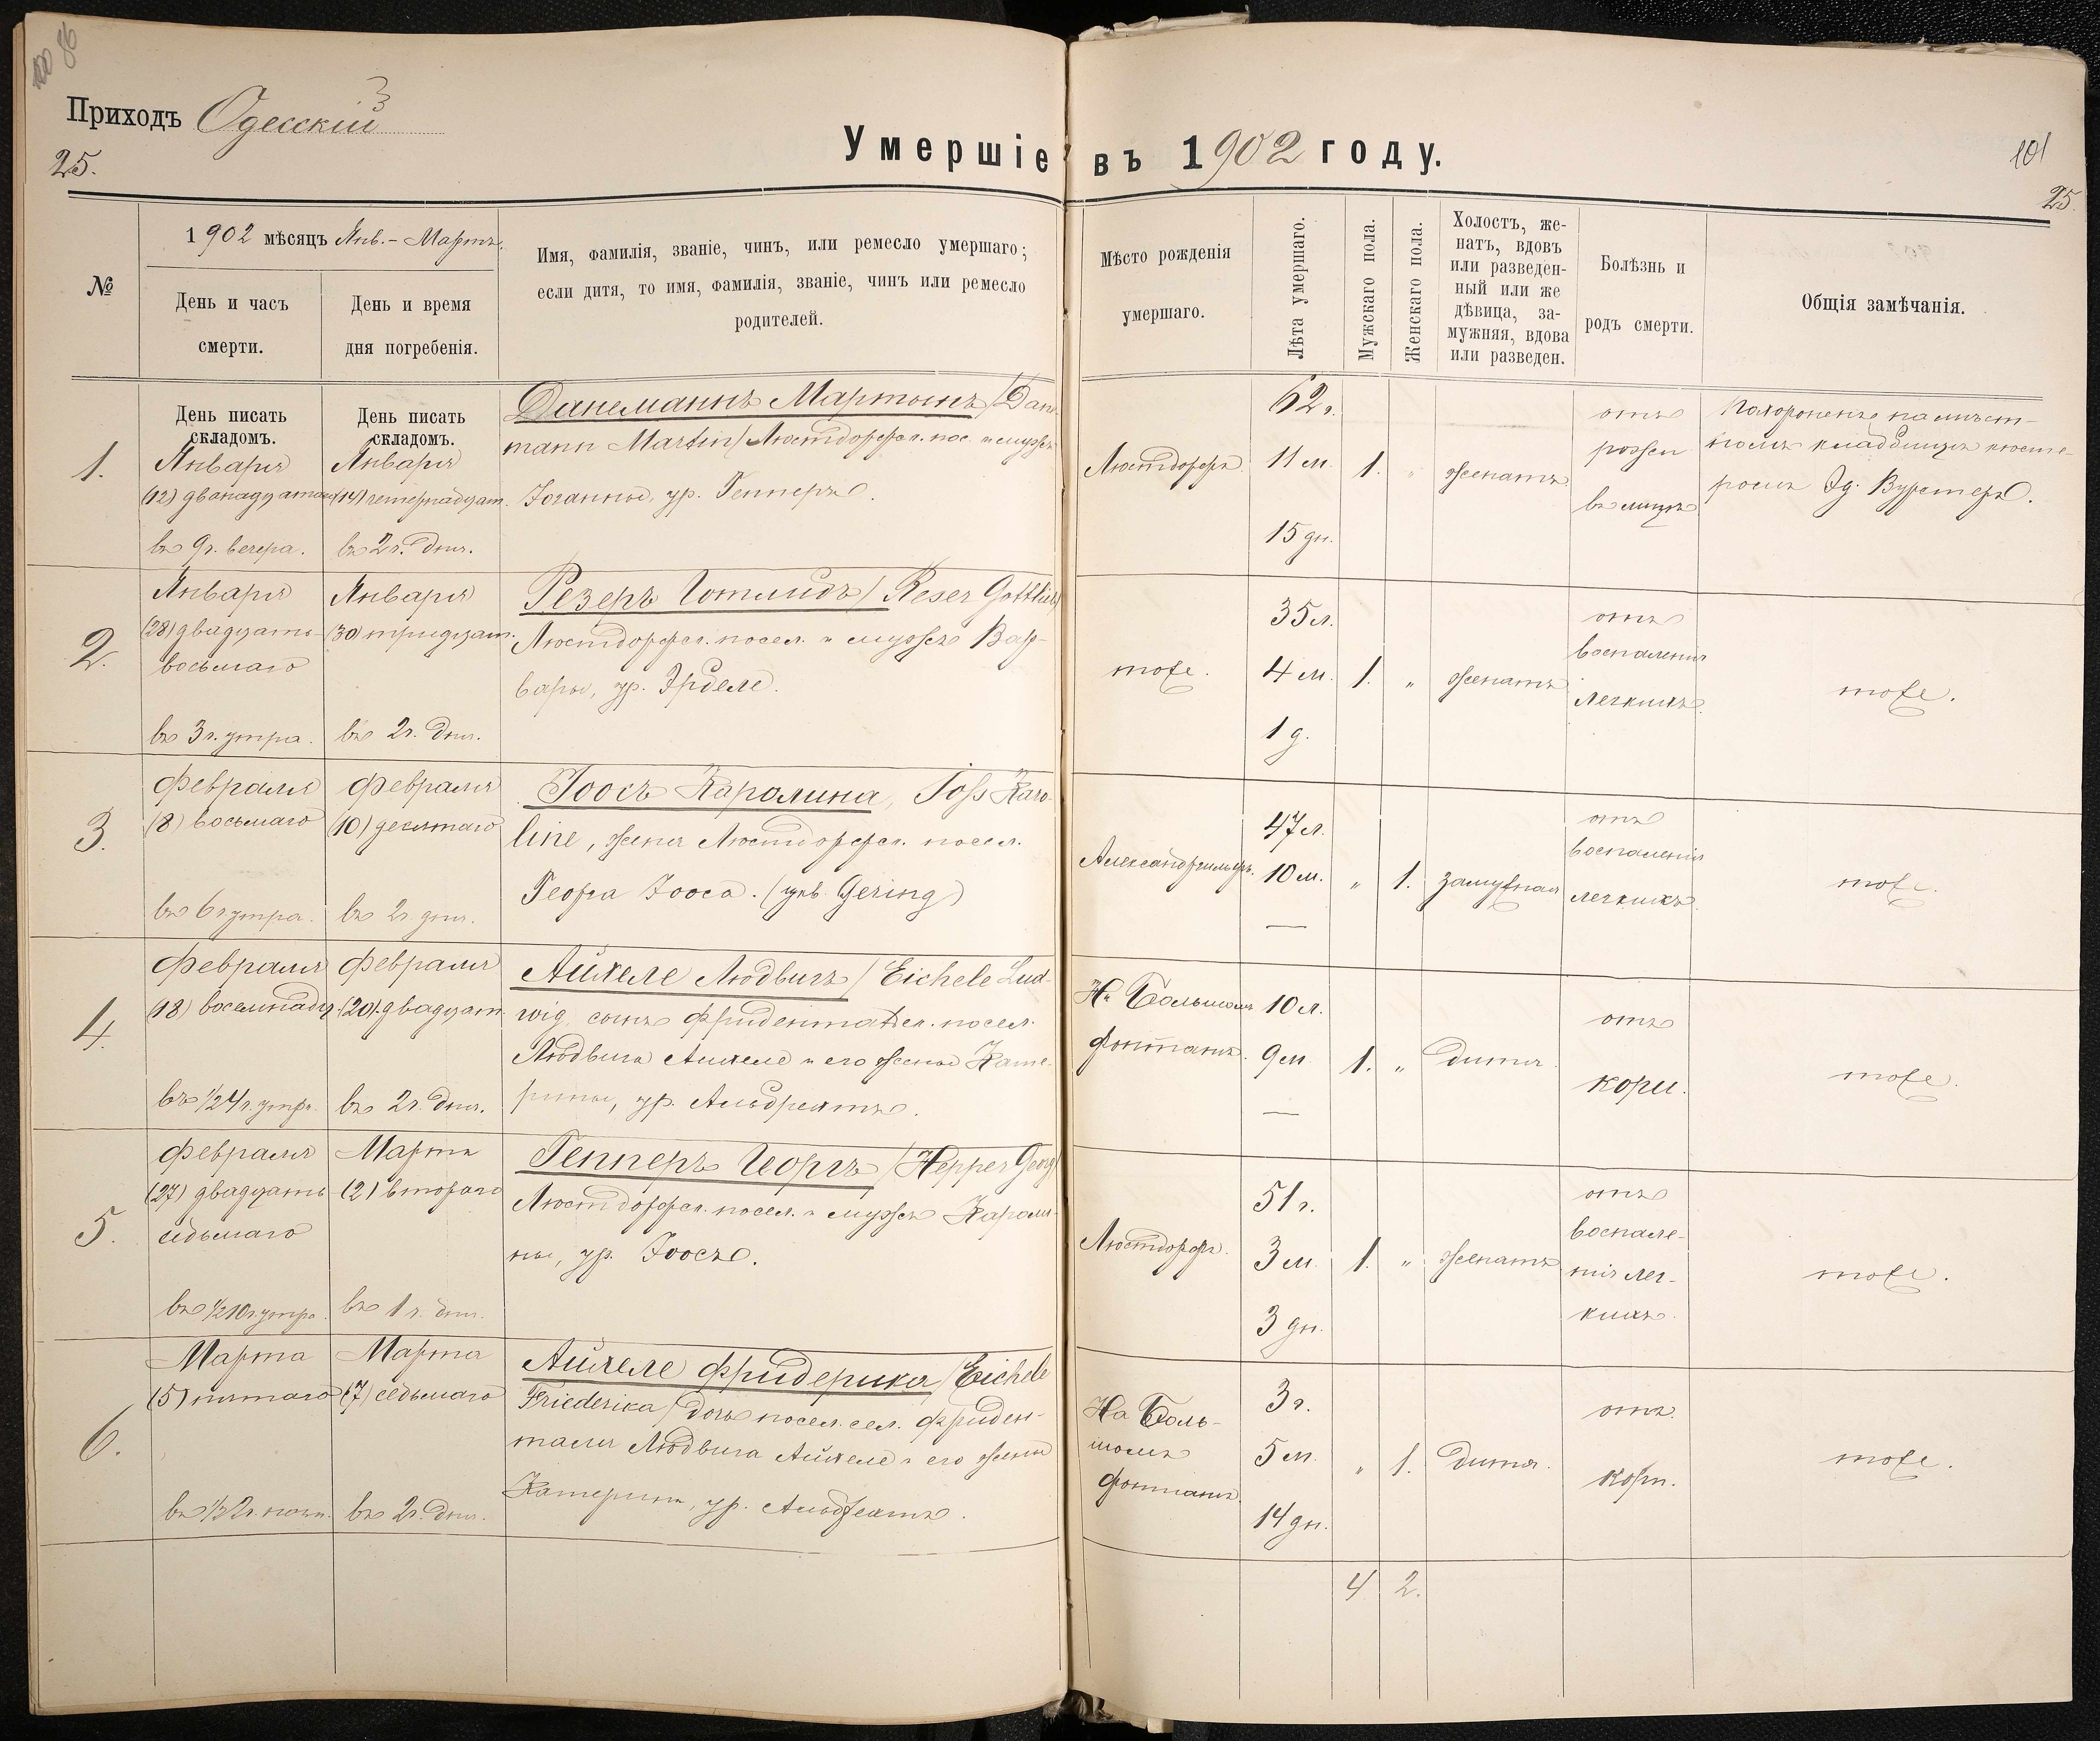 100 86
Приходъ Одесскій
25.
Умершіе въ 1902 году.
101
25.
№
1902 мѣсяцъ Янв.-Мартъ.
День и часъ
смерти.
День и время
дня погребенія.
Имя, фамилія, званіе, чинъ, или ремесло умершаго;
если дитя, то имя, фамилія, званіе, чинъ или ремесло
родителей.
Мѣсто рожденія
умершаго.
Лѣта умершаго.
Мужскаго пола.
Женскаго пола.
Холостъ, же-
натъ, вдовъ
или разведен-
ный или же
дѣвица, за-
мужняя, вдова
или разведен.
Болѣзнь и
родъ смерти.
Общія замѣчанія.
День писать
складомъ.
День писать
складомъ.
1.
Января
(12) двѣнадцатаго
въ 9 ч. вечера.
Января
(14) четернадцат.
въ 2 ч. дня.
Данеманнъ Мартынъ / Dane-
mann Martin / Люстдорфск. пос. и мужъ
Іоганны, ур. Гепперъ.
Люстдорфъ.
62 г.
11 м.
15 дн.
1.
"
женатъ
отъ
рожи
въ лицѣ
Похороненъ на мѣст-
номъ кладбищѣ кюсте-
ромъ Эд. Вурстеръ.
2.
Января
(28) двадцать
восьмаго
въ 3 ч. утра.
Января
(30) тридцат.
въ 2 ч. дня.
Резеръ Готлибъ / Reser Gottlieb/
Люстдорфск. посел. и мужъ Вар-
вары, ур. Эрделе.
тоже.
35 л.
4 м.
1 д.
1.
"
женатъ
отъ
воспаленія
легкихъ.
тоже.
3.
Февраля
(8) восьмаго
въ 6 ч. утра.
Февраля
(10) десятаго
въ 2 ч. дня.
Іоосъ Каролина, Joss Karo-
line, жена Люстдорфск. посел.
Георга Іооса. (урв. Gering)
Александергильфъ.
47 л.
10 м.
—
"
1.
замужняя
отъ
воспаленія
легкихъ.
тоже.
4.
Февраля
(18) восемнадц.
въ ½4 ч. утра.
Февраля
(20) двадцат.
въ 2 ч. дня.
Айхеле Людвигъ / Eichele Lud-
wig, сынъ Фридентальск. посел.
Людвига Айхеле и его жены Кате-
рины, ур. Альбрехтъ.
На Большомъ
фонтанѣ.
10 л.
9 м.
—
1.
"
дитя.
отъ
кори.
тоже.
5.
Февраля
(27) двадцать
седьмаго
въ ½10 ч. утра.
Марта
(2) втораго
въ 1 ч. дня.
Гепперъ Георгъ / Hepper Georg/
Люстдорфск. посел. и мужъ Кароли-
ны, ур. Іоосъ.
Люстдорфъ.
51 г.
3 м.
3 дн.
1.
"
женатъ
отъ
воспале-
нія лег-
кихъ.
тоже.
6.
Марта
(5) пятаго
въ ½2 ч. ночи.
Марта
(7) седьмаго
въ 2 ч. дня.
Айхеле Фридерика / Eichele
Friederica / дочь посел. сел. Фриден-
таля Людвига Айхеле и его жены
Катерины, ур. Альбрехтъ.
На Боль-
шомъ
фонтанѣ.
3 г.
5 м.
14 дн.
"
1.
дитя.
отъ
кори.
тоже.
4
2.